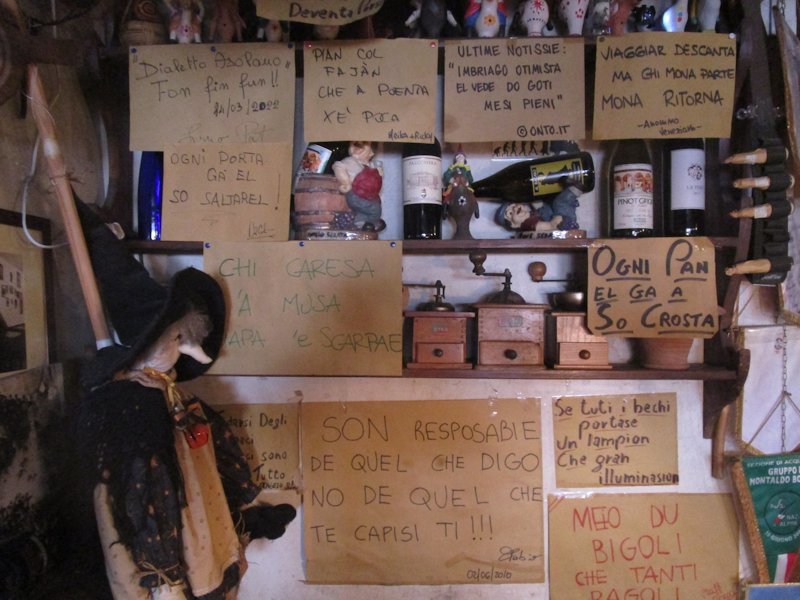 Deventa
"Dialetto Asolano"
Fon fin fun!!
14/03/2022
PIAN COL
FAJÀN
CHE A PUENTA
XÈ POCA
ULTIME NOTISSIE:
"IMBRIAGO OTIMISTA
EL VEDE DO GOTI
MESI PIENI"
© ONTO.IT
VIAGGIAR DESCANTA
MA CHI MONA PARTE
MONA RITORNA
- ANONIMO
VENEZIANO -
OGNI PORTA
GÀ EL
SO SALTAREL!
CHI CARESA
'A MUSA
CIAPA 'E SGARBAE
OGNI PAN
EL GA A
SO CROSTA
PINOT GRIGIO
SON RESPOSABIE
DE QUEL CHE DIGO
NO DE QUEL CHE
TE CAPISI TI!!!
Fabio
02/06/2010
Se tuti i bechi
portase
un lampion
Che gran
illuminasion
Degli
sono
Tutto
MEIO DU
BIGOLI
CHE TANTI
RAGOLI
GRUPPO
MONTALDO BO